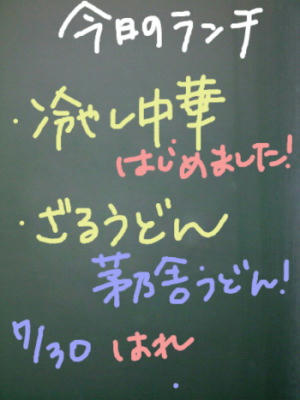 今日のランチ
・冷やし中華
はじめました!
・ざるうどん
茅乃舎うどん!
7/30 はれ